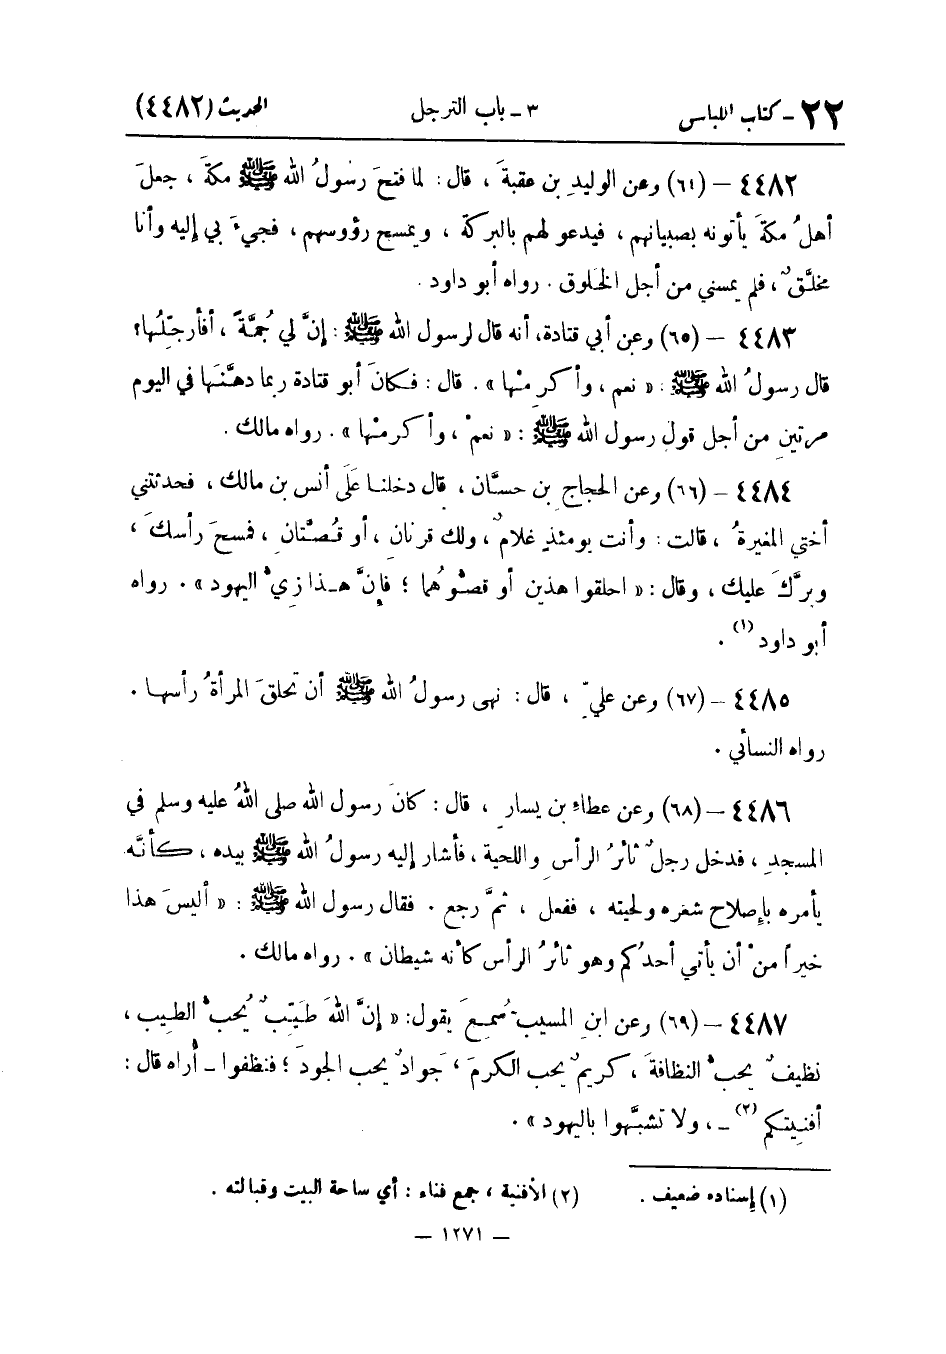 ٢٢ - كتاب اللباس ٣ - باب الترجل الحديث (٤٤٨٢)
٤٤٨٢ - (٦٤) وعن الوليدِ بن عقبةَ ، قال : لما فتحَ رسولُ الله ﷺ مكةَ ، جعلَ
أهلُ مكةَ يأتونه بصبيانهم ، فيدعو لهم بالبركة ، ويمسح رؤوسهم ، فجيءَ بي إليه وأنا
مخلَّقٌ ، فلم يمسني من أجل الخَلوق . رواه أبو داود .
٤٤٨٣ - (٦٥) وعن أبي قتادة، أنه قال لرسول الله ﷺ : إنَّ لي جُمَّةً ، أفأرجّلُها؟
قال رسولُ الله ﷺ : « نعم ، وأكرمْها » . قال : فكانَ أبو قتادة ربما دهَّنَها في اليوم
مرتينِ من أجل قولِ رسول الله ﷺ : « نعمْ ، وأكرمْها » . رواه مالك .
٤٤٨٤ - (٦٦) وعن الحجاجِ بن حسَّان ، قال دخلنا عَلَى أنس بن مالك ، فحدثتني
أختي المغيرةُ ، قالت : وأنت يومئذٍ غلامٌ ، ولك قرنان ، أو قُصَّتان ، فمسحَ رأسكَ ،
وبرَّكَ عليك ، وقال : « احلقوا هذين أو قصُّوهُما ؛ فإِنَّ هـذا زِيُّ اليهود » . رواه
أبو داود (١) .
٤٤٨٥ - (٦٧) وعن عليّ ٍ ، قال : نهى رسولُ الله ﷺ أن تحلقَ المرأةُ رأسها .
رواه النسائي .
٤٤٨٦ - (٦٨) وعن عطاءِ بن يسارٍ ، قال : كانَ رسول الله صلى اللهُ عليه وسلم في
المسجدِ ، فدخل رجلٌ ثائرُ الرأسِ واللحية ، فأشار إليه رسولُ الله ﷺ بيده ، كـأنَّه
يأمره بإِصلاح شعره ولحيته ، ففعل ، ثمَّ رجع . فقال رسول الله ﷺ : « أليسَ هذا
خيراً منْ أن يأتي أحدُكم وهو ثائرُ الرأس كأنه شيطان » . رواه مالك .
٤٤٨٧ - (٦٩) وعن ابنِ المسيبِ سُمِعَ يقول: « إنَّ اللهَ طَيِّبٌ يُحبُّ الطيب ،
نظيفٌ يحبُّ النظافةَ ، كريمٌ يحب الكرمَ ، جوادٌ يحب الجودَ ؛ فنظفوا - أُراه قال :
أفنيتكم (٢) - ، ولا تشبَّهوا باليهود » .
(١) إسناده ضعيف . (٢) الأفنية ، جمع فناء : أي ساحة البيت وقبالته .
— ١٢٧١ —